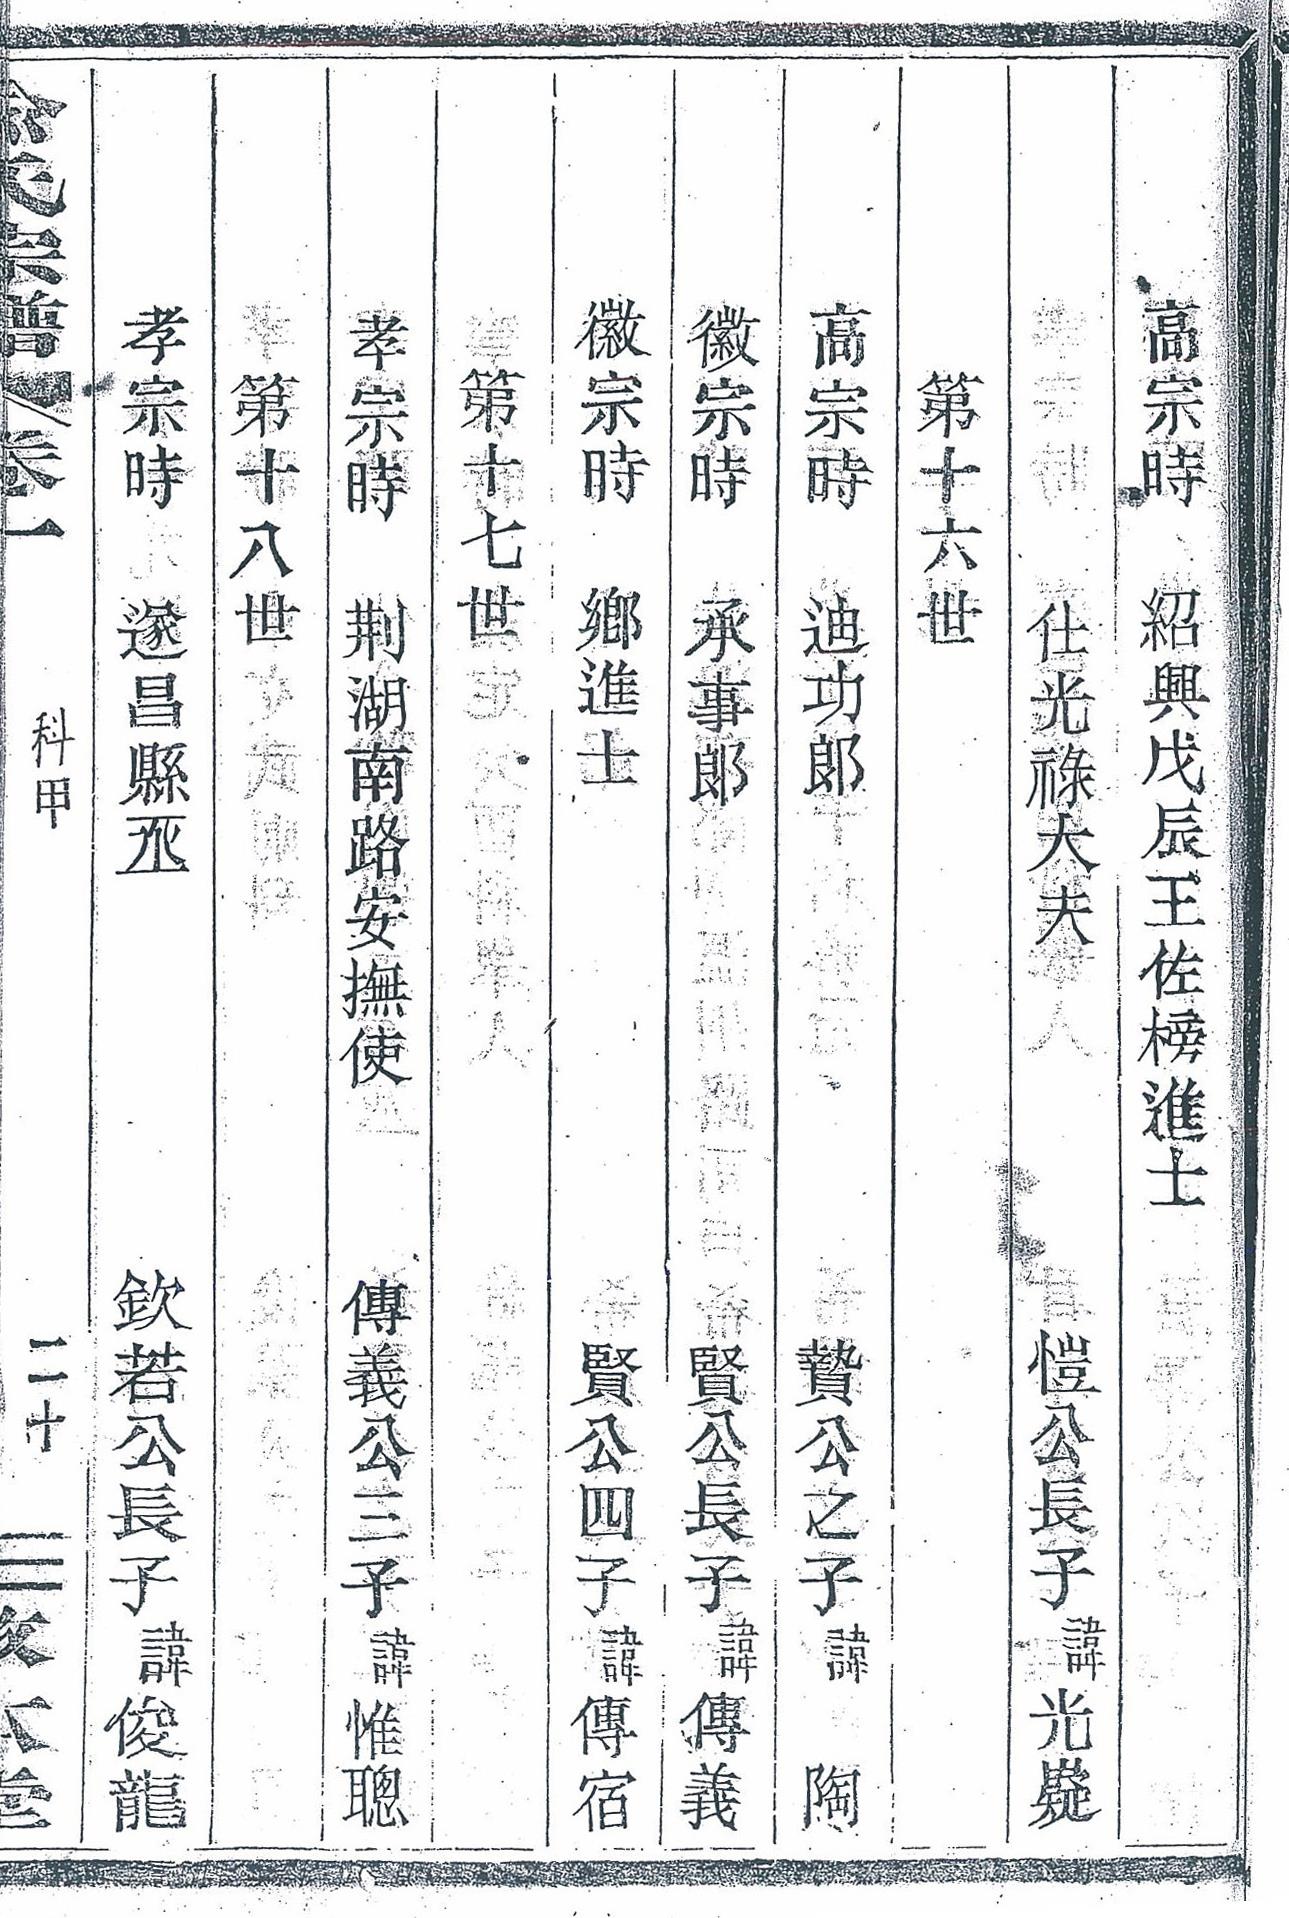 高宗時 紹興戊辰王佐榜進士
仕光祿大夫 愷公長子 諱 光嶷
第十六世
高宗時 迪功郎 贄公之子 諱 陶
徽宗時 承事郎 賢公長子 諱 傳義
徽宗時 鄉進士 賢公四子 諱 傳宿
第十七世
孝宗時 荆湖南路安撫使 傳義公三子 諱 惟聰
第十八世
孝宗時 遂昌縣丞 欽若公長子 諱 俊龍
氏宗譜 卷一 科甲 二十